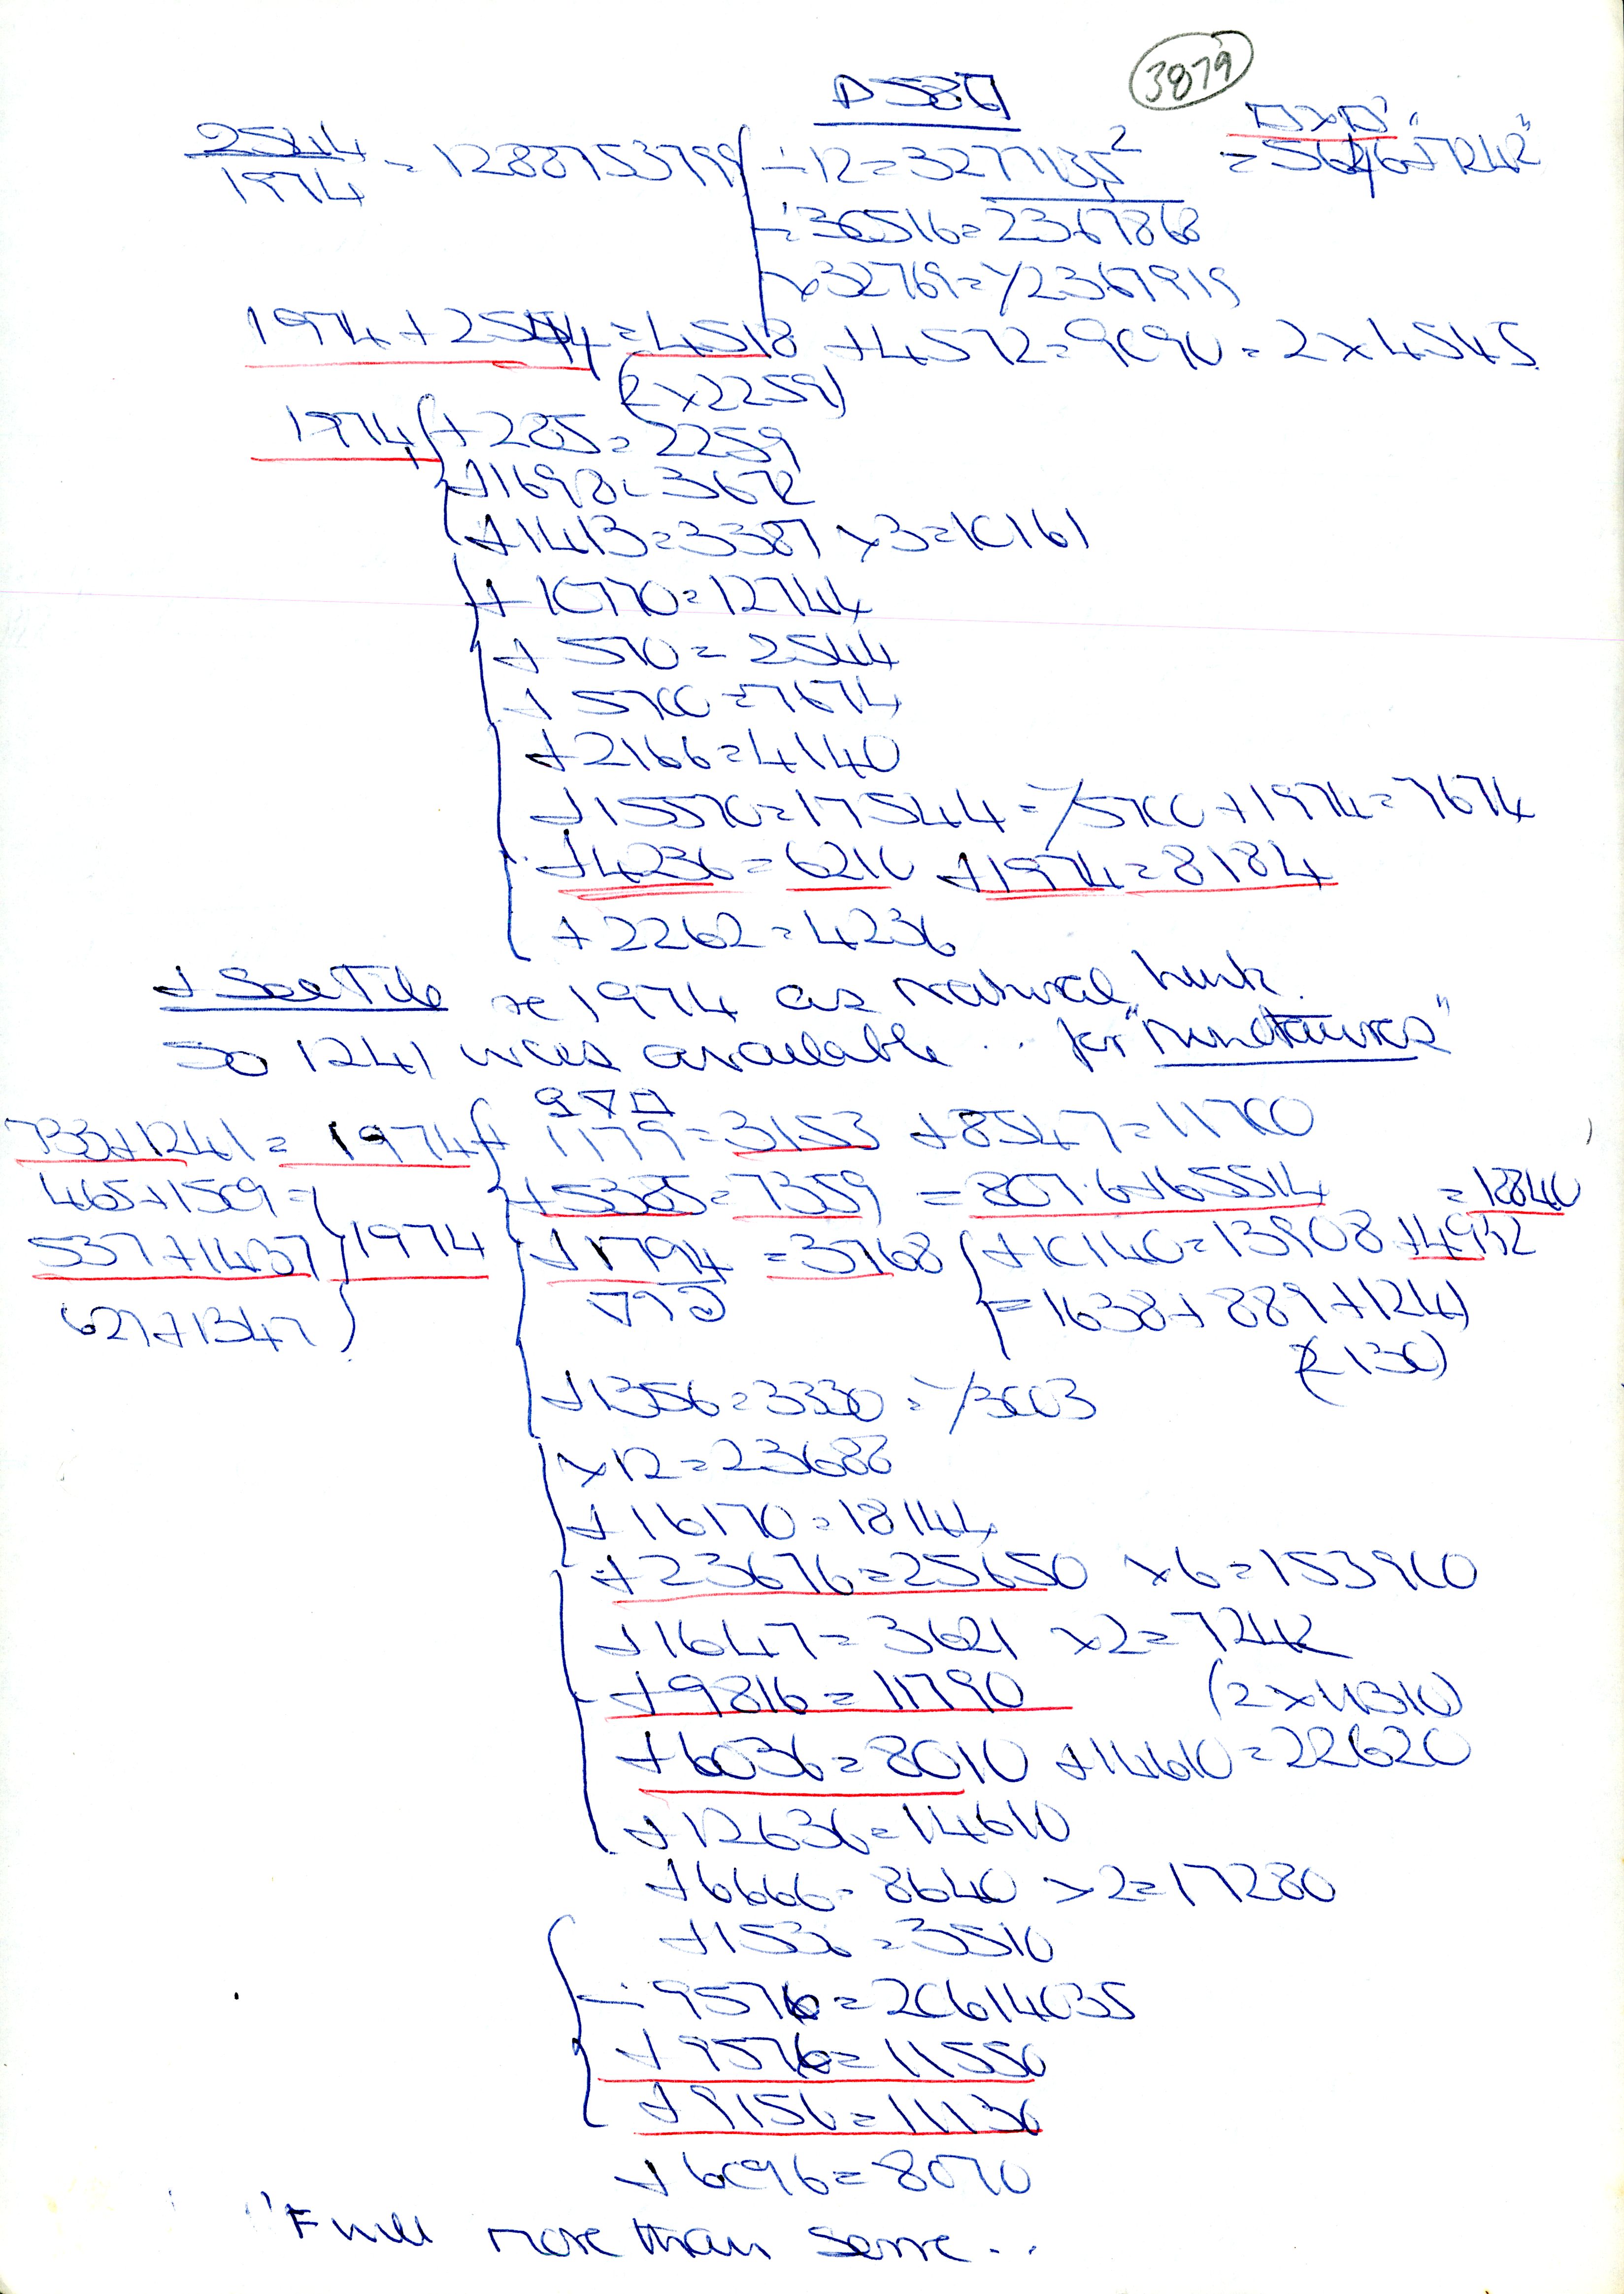 3879
2544/1974 = 1288753799 ÷12 = 3277135²
÷36516 = 2367868
×32769 = 1/2367919
1974 + 2544 = 4518 + 4572 = 9090 = 2 × 4545
(2 × 2259)
1974 + 285 = 2259
+ 1698 = 3672
+ 1413 = 3387 × 3 = 10161
+ 10770 = 12744
+ 570 = 2544
+ 5700 = 7674
+ 2166 = 4140
+ 15570 = 17544 = 1/5700 + 1974 = 7674
+ 4236 = 6210 + 1974 = 8184
+ 2262 = 4236
+ See File re 1974 as natural
So 1241 was available .. for
733 + 1241 = 1974 + 1179 = 3153 + 8547 = 11700
465 + 1509 = + 5385 = 7359 = 807.6 + 65514 = 18840
537 + 1437 1974 + 1794 = 3768 + 10140 = 13908 + 4932
627 + 1347 = 1638 + 889 + 1241
(2130)
+ 1356 = 3330 = 1/3003
× 12 = 23688
+ 16170 = 18144
+ 23676 = 25650 × 6 = 153900
+ 1647 = 3621 × 2 = 7242
+ 9816 = 11790 (2 × 11310)
+ 6036 = 8010 + 14610 = 22620
+ 12636 = 14610
+ 6666 = 8640 × 2 = 17280
+ 1536 = 3510
÷ 9576 = 20614035
+ 9576 = 11550
+ 9156 = 11130
+ 6096 = 8070
more than some ..